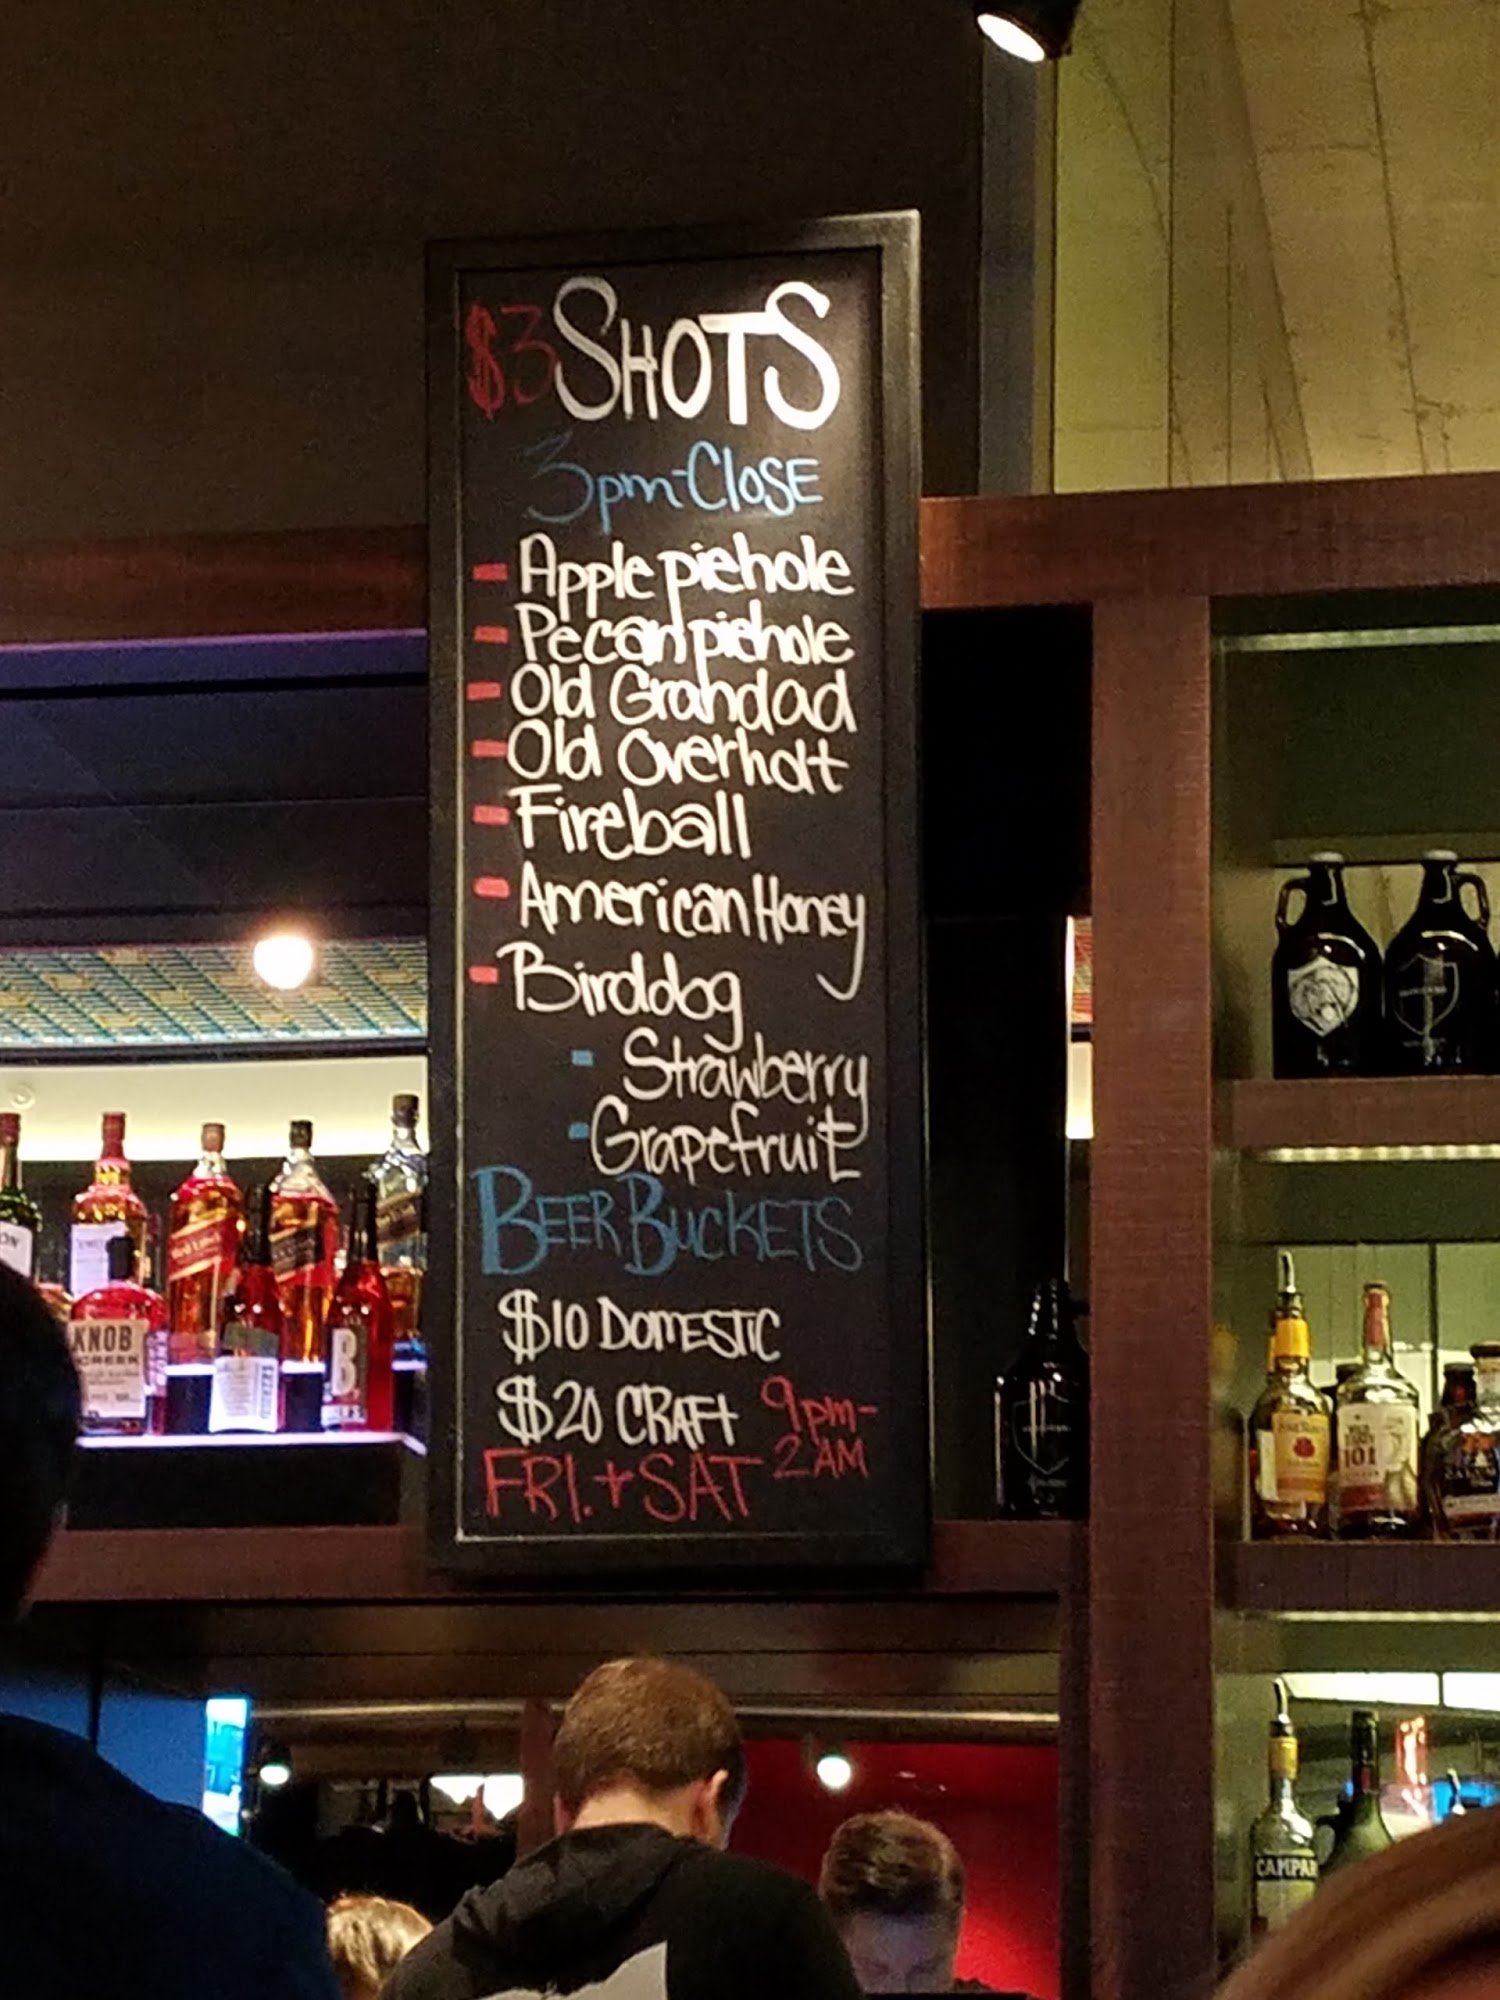 $3 SHOTS
3pm-CLOSE
- Apple piehole
- Pecan piehole
- Old Grandad
- Old Overholt
- Fireball
- American Honey
- Birddog
- Strawberry
- Grapefruit
BEER BUCKETS
$10 DOMESTIC
$20 CRAFT 9pm-
FRI. + SAT 2AM
KNOB
CREEK
Red Label
B
101
CAMPAR